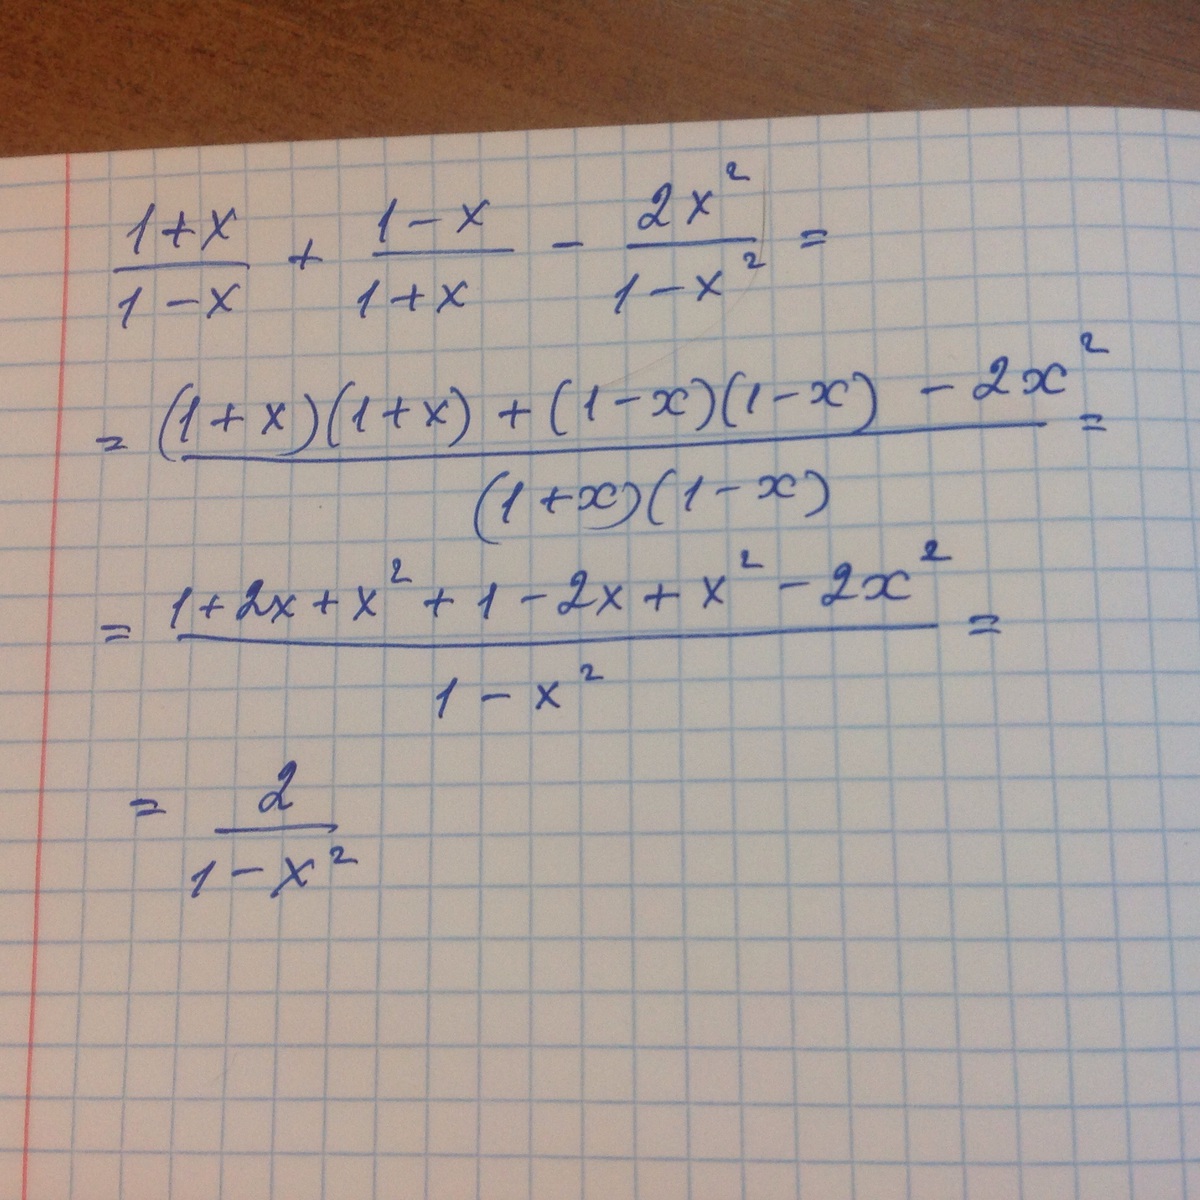 (1+x)/(1-x) + (1-x)/(1+x) - 2x²/(1-x²) =
= ((1+x)(1+x) + (1-x)(1-x) - 2x²)/((1+x)(1-x)) =
= (1+2x+x²+1-2x+x²-2x²)/(1-x²) =
= 2/(1-x²)